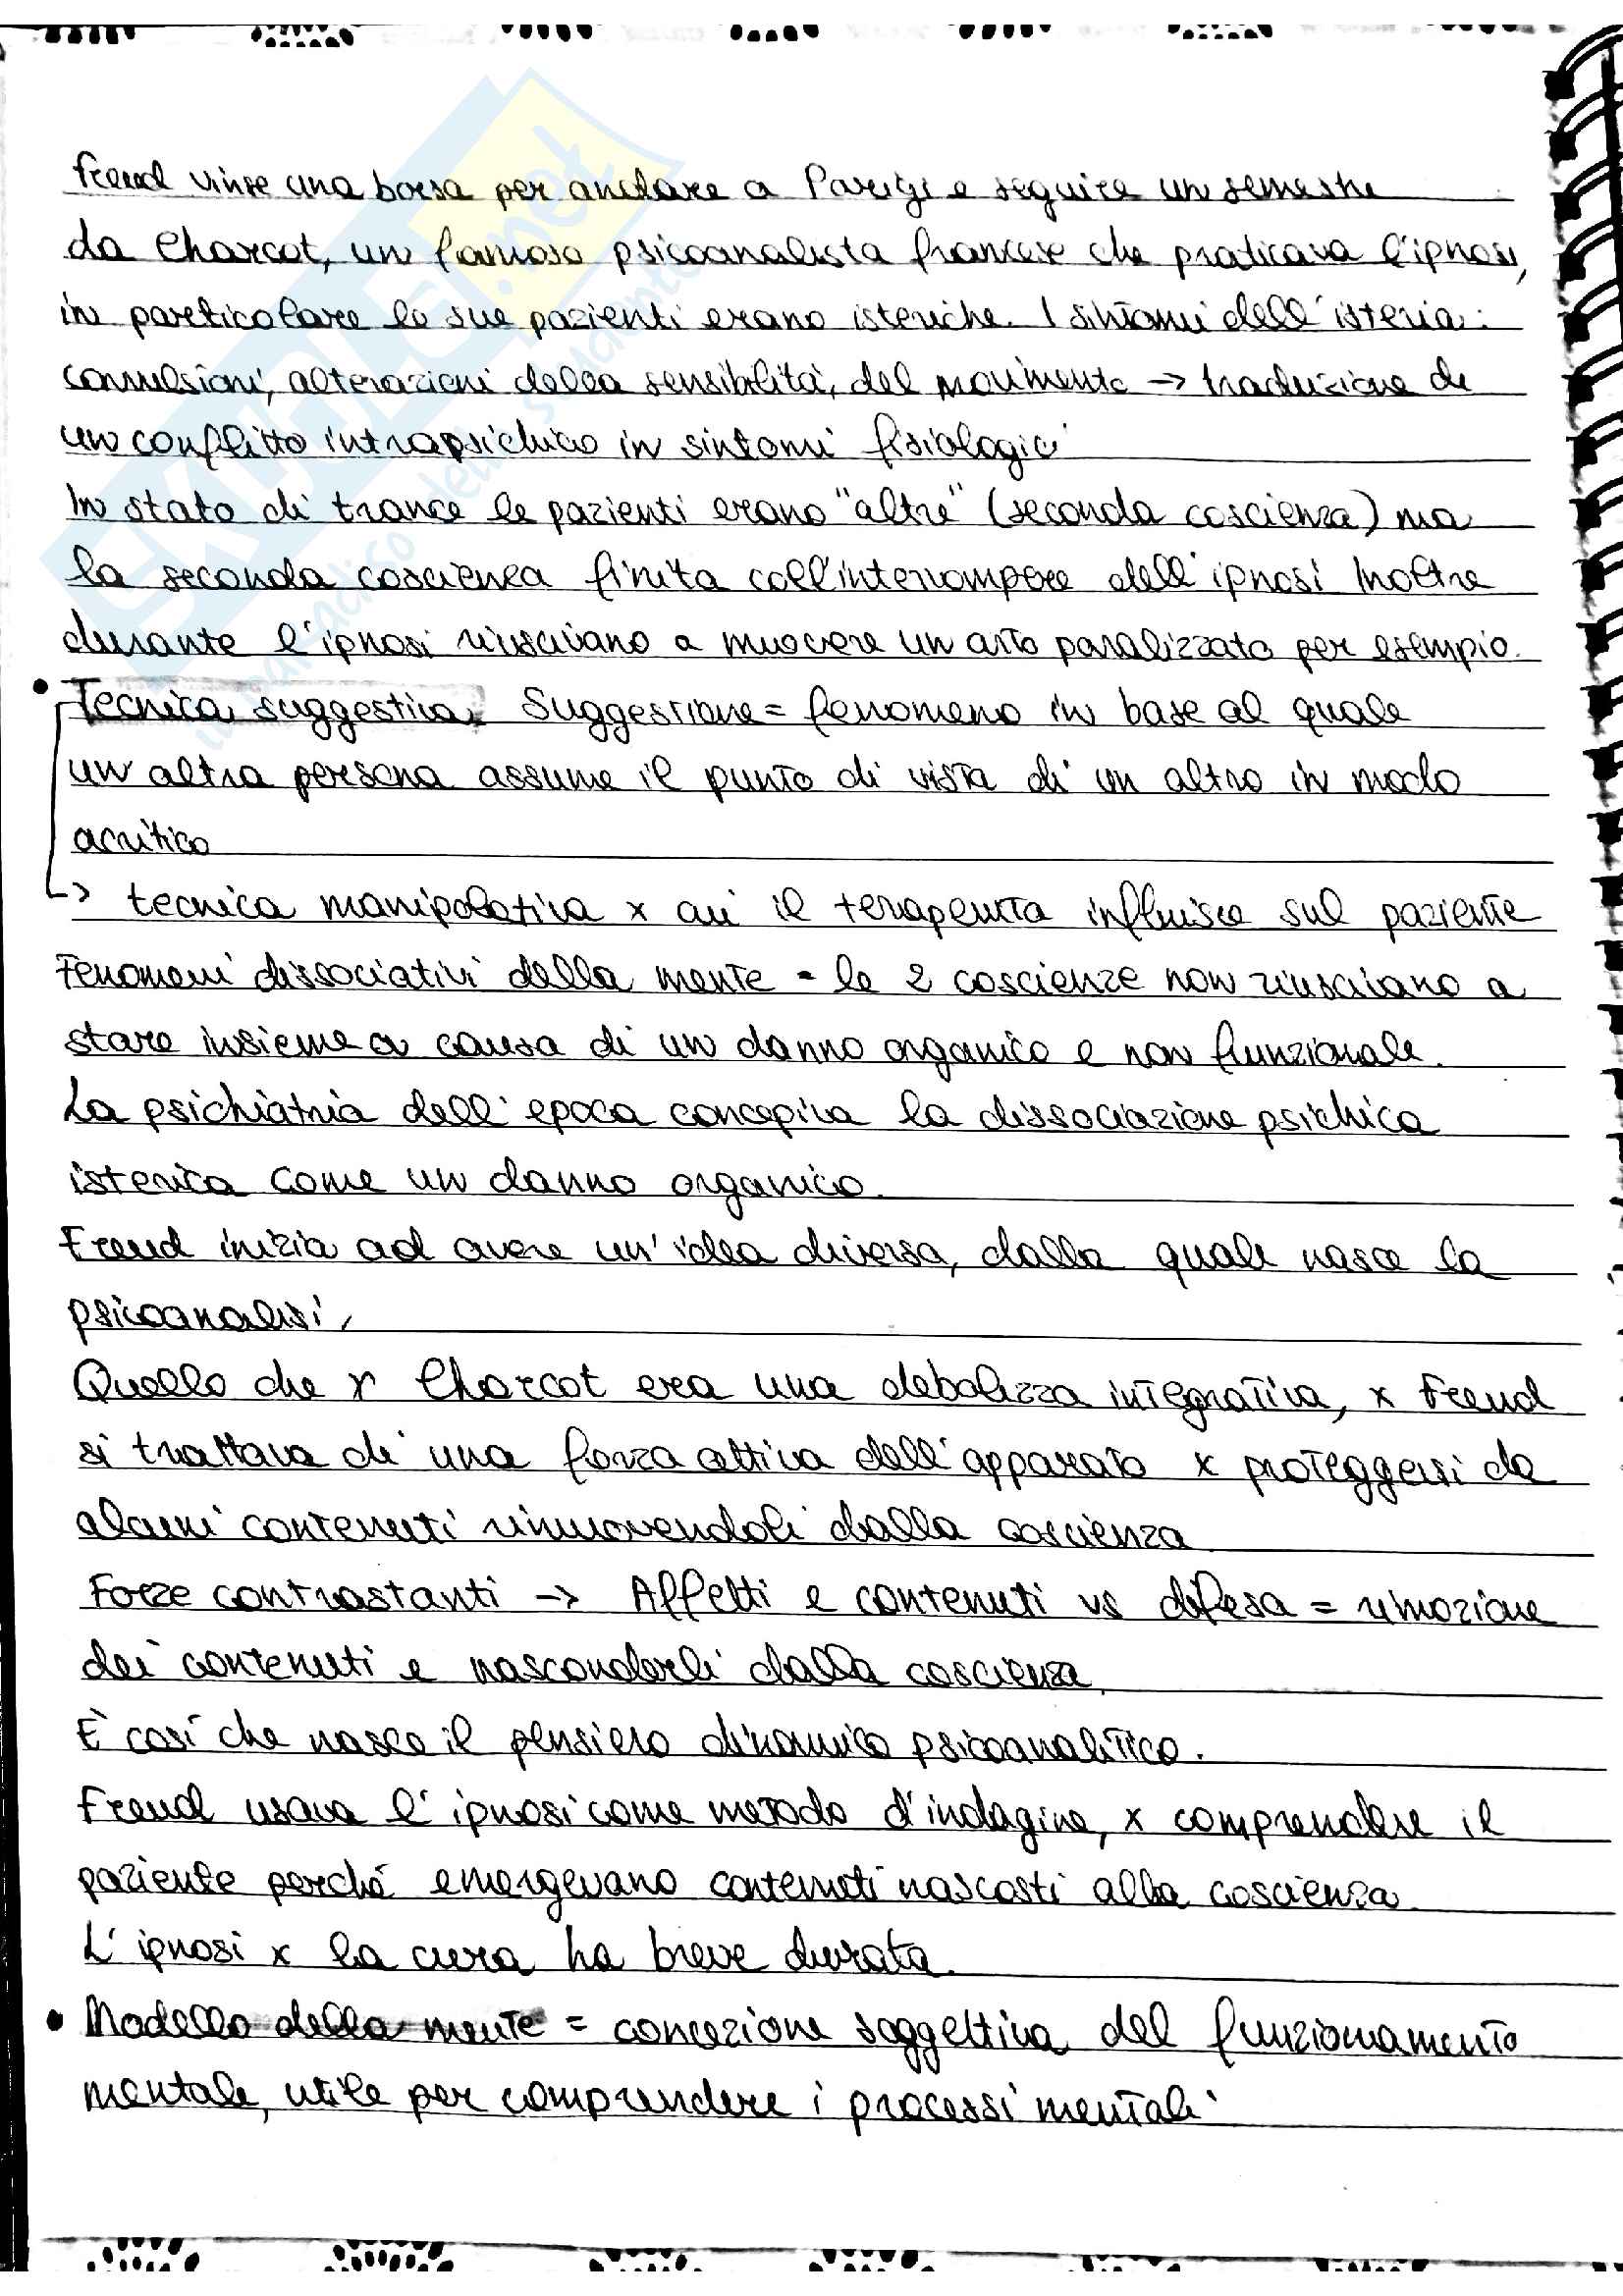 Freud vinse una borsa per andare a Parigi e seguire un semestre
da Charcot, un famoso psicoanalista francese che praticava l'ipnosi,
in particolare le sue pazienti erano isteriche. I sintomi dell'isteria:
convulsioni, alterazioni della sensibilità, del movimento -> traduzione di
un conflitto intrapsichico in sintomi fisiologici
In stato di trance le pazienti erano "altre" (seconda coscienza) ma
la seconda coscienza finita coll'interrompere dell'ipnosi Inoltre
durante l'ipnosi riuscivano a muovere un arto paralizzato per esempio.
• Tecnica suggestiva. Suggestione = fenomeno in base al quale
un altra persona assume il punto di vista di un altro in modo
acritico
-> tecnica manipolativa x cui il terapeuta influisce sul paziente
Fenomeni dissociativi della mente = le 2 coscienze non riuscivano a
stare insieme a causa di un danno organico e non funzionale.
La psichiatria dell'epoca concepiva la dissociazione psichica
isterica come un danno organico.
Freud inizia ad avere un'idea diversa, dalla quale nasce la
psicoanalisi.
Quello che x Charcot era una debolezza integrativa, x Freud
si trattava di una forza attiva dell'apparato x proteggersi da
alcuni contenuti rimuovendoli dalla coscienza
Forze contrastanti -> Affetti e contenuti vs difesa = rimozione
dei contenuti e nasconderli dalla coscienza.
È così che nasce il pensiero dinamico psicoanalitico.
Freud usava l'ipnosi come metodo d'indagine, x comprendere il
paziente perché emergevano contenuti nascosti alla coscienza.
L'ipnosi x la cura ha breve durata.
• Modello della mente = concezione soggettiva del funzionamento
mentale, utile per comprendere i processi mentali